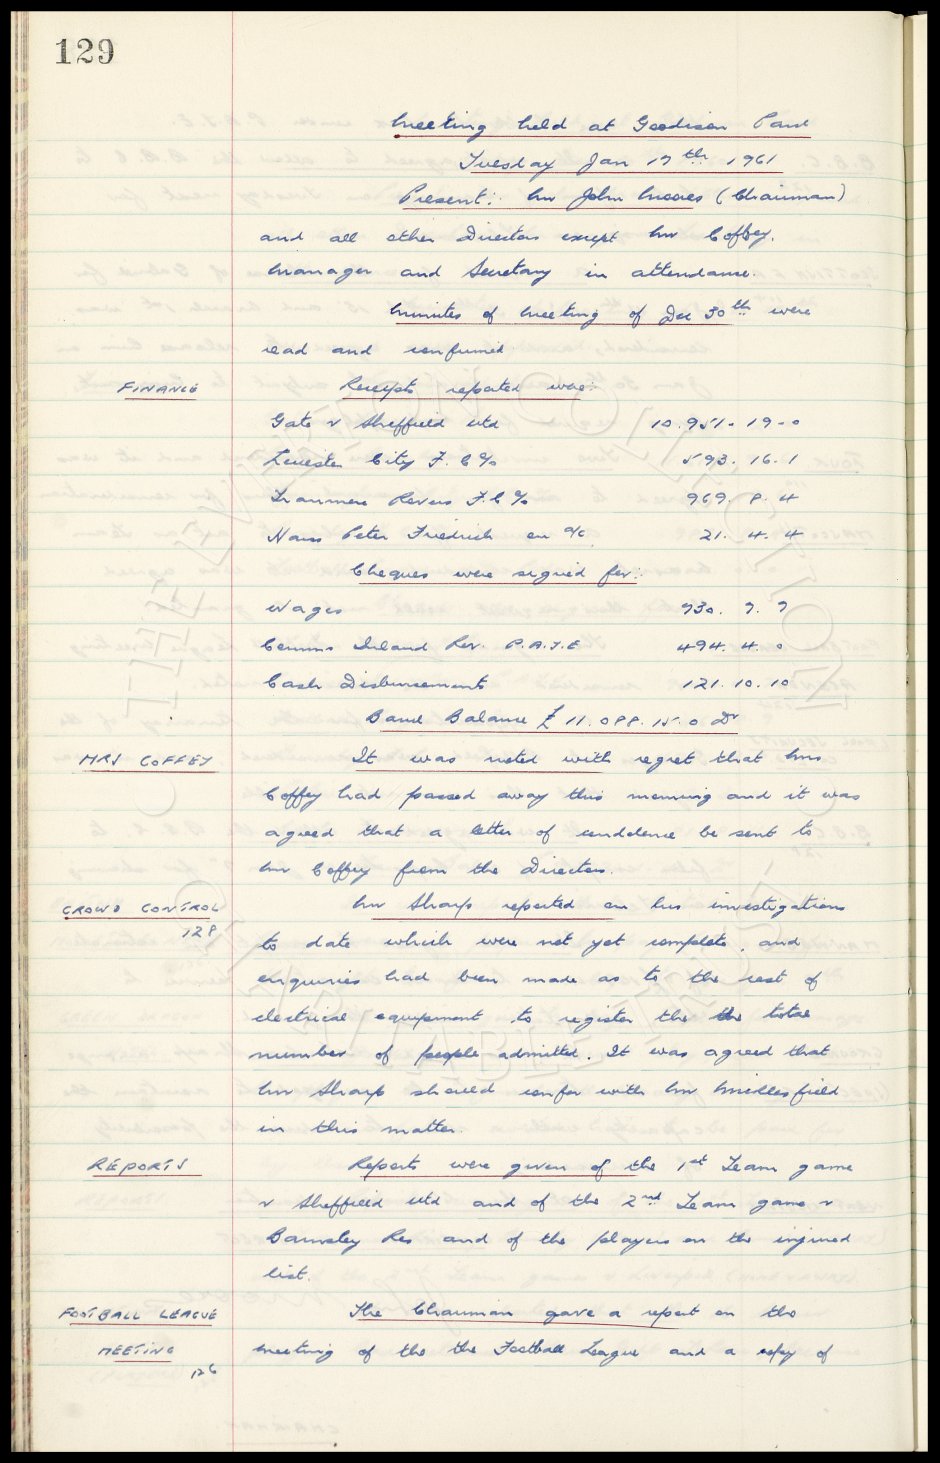 129
Meeting held at Goodison Park
Tuesday Jan 17th 1961
Present: Mr John Moores (Chairman)
and all other Directors except Mr Coffey.
Manager and Secretary in attendance.
Minutes of Meeting of Dec 30th were
read and confirmed
FINANCE
Receipts reported were:
Gate v Sheffield Utd 10.951. 19 - 0
Leicester City F.C % 593. 16. 1
Tranmere Rovers F.C % 969. 8. 4
Hans Peter Friedrich on a/c 21. 4. 4
Cheques were signed for:
Wages 930. 7. 7
Comms Inland Rev. P.A.Y.E 494. 4. 0
Cash Disbursements 121. 10. 10
Bank Balance £ 11.088. 15. 0 Dr
MRS COFFEY
It was noted with regret that Mrs
Coffey had passed away this morning and it was
agreed that a letter of condolence be sent to
Mr Coffey from the Directors.
CROWD CONTROL
128
Mr Sharp reported on his investigations
to date which were not yet complete, and
enquiries had been made as to the cost of
electrical equipment to register the the total
number of people admitted. It was agreed that
Mr Sharp should confer with Mr Micklesfield
in this matter.
REPORTS
Reports were given of the 1st Team game
v Sheffield Utd and of the 2nd Team game v
Barnsley Res and of the players on the injured
list.
FOOTBALL LEAGUE
MEETING
126
The Chairman gave a report on the
meeting of the the Football League and a copy of